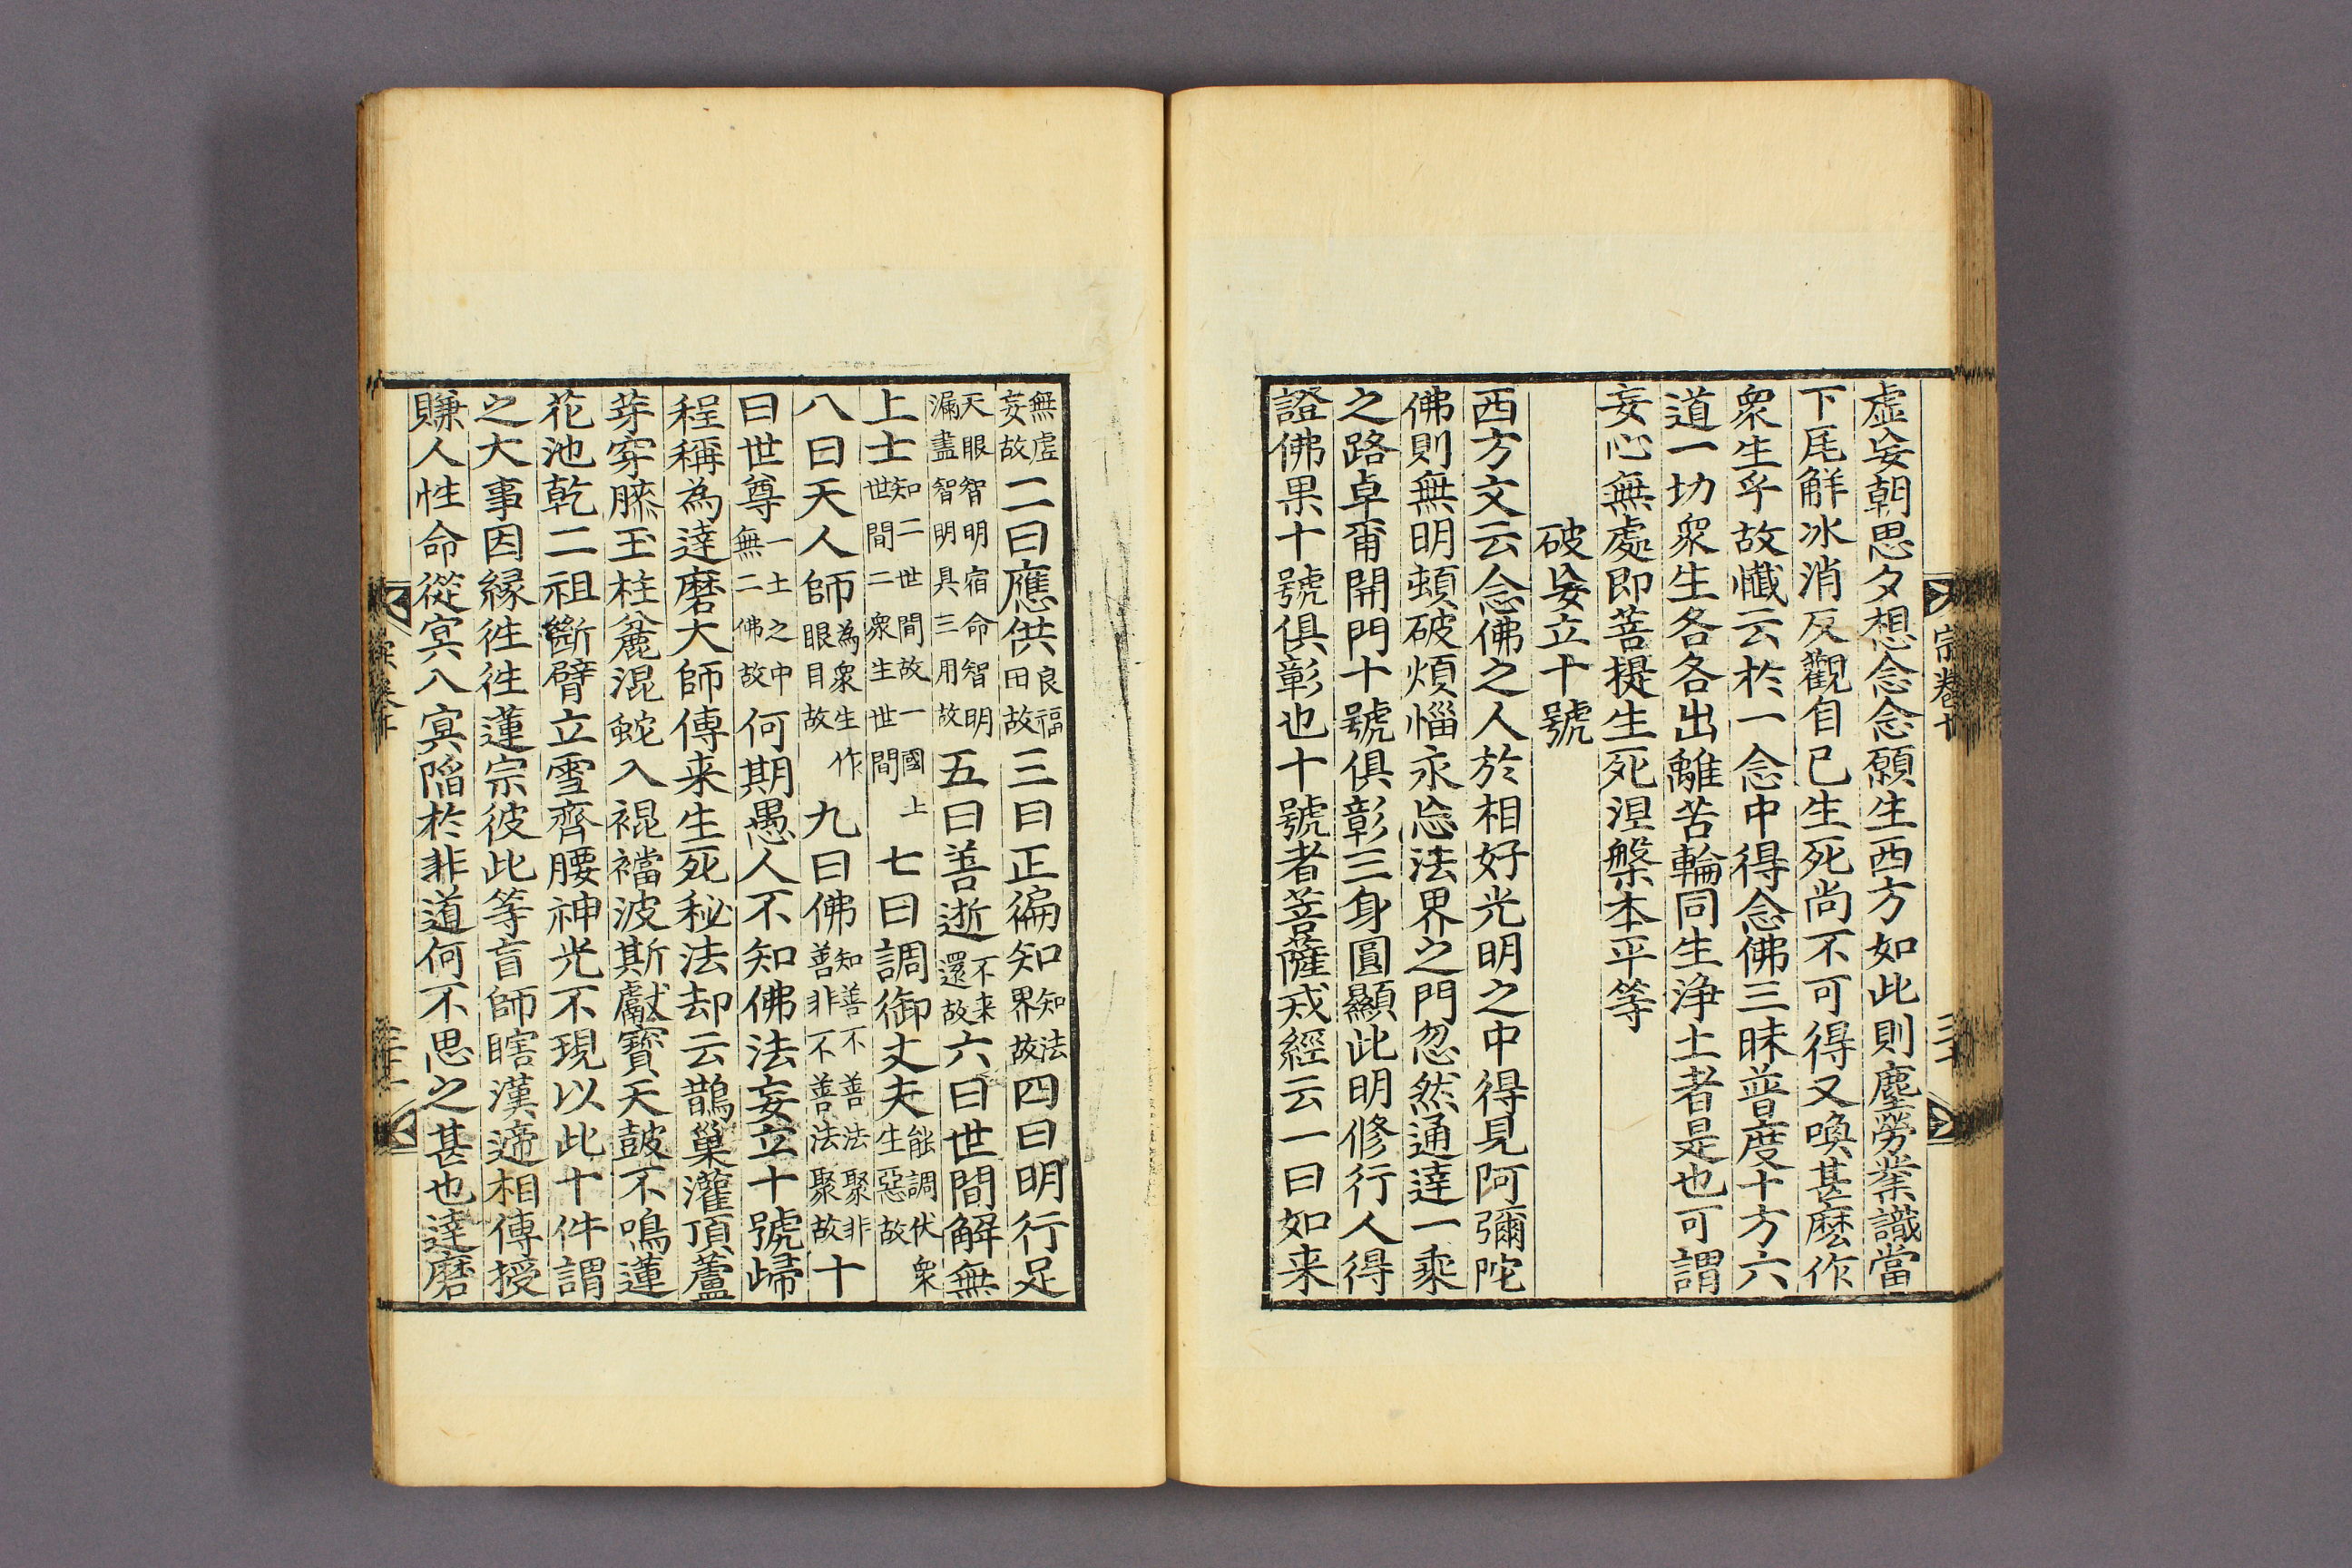 宗卷十
三十
虛妄朝思夕想念念願生西方如此則塵勞業識當
下瓦解冰消反觀自已生死尚不可得又喚甚麽作
衆生乎故懴云於一念中得念佛三昧普度十方六
道一切衆生各各出離苦輪同生淨土者是也可謂
妄心無處即菩提生死涅槃本平等
破妄立十號
西方文云念佛之人於相好光明之中得見阿彌陀
佛則無明頓破煩惱永忘法界之門忽然通達一乘
之路卓爾開門十號俱彰三身圓顯此明修行人得
證佛果十號俱彰也十號者菩薩戒經云一曰如来
無虛妄故二曰應供良福田故三曰正徧知知法界故四曰明行足
天眼智明宿命智明漏盡智明具三用故五曰善逝不来還故六曰世間解無
上士知二世間故一國土世間二衆生世間七曰調御丈夫能調伏衆生惡故
八曰天人師為衆生作眼目故九曰佛知善不善法聚非善非不善法聚故十
曰世尊一土之中無二佛故何期愚人不知佛法妄立十號歸
程稱為達磨大師傳来生死秘法却云鵲巢灌頂蘆
芽穿膝玉柱麁混蛇入裩襠波斯獻寶天鼓不鳴蓮
花池乾二祖斷臂立雪齊腰神光不現以此十件謂
之大事因緣徃徃蓮宗彼此等盲師瞎漢遞相傳授
賺人性命從冥入冥陷於非道何不思之甚也達磨